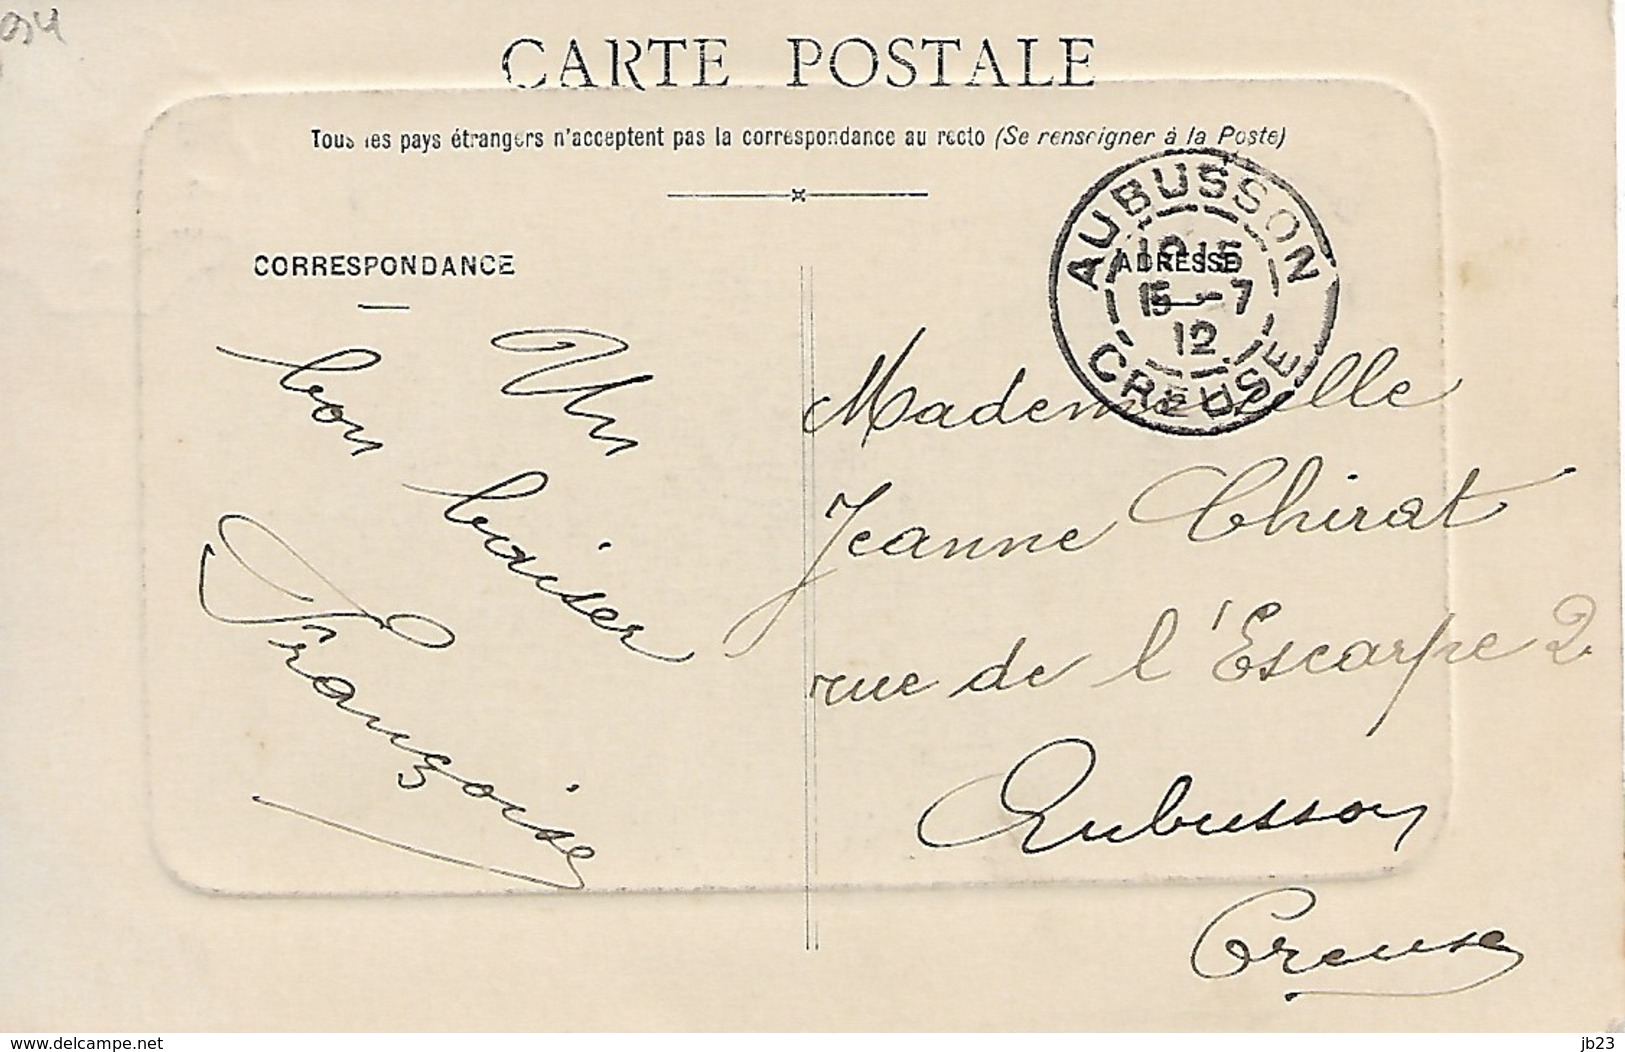 CARTE POSTALE
Tous les pays étrangers n'acceptent pas la correspondance au recto (Se renseigner à la Poste)
CORRESPONDANCE
ADRESSE
AUBUSSON
15-7
12
CREUSE
Un
bon baiser
Françoise
Mademoiselle
Jeanne Chirat
rue de l'Escarpe 2.
Aubusson
Creuse
www.delcampe.net
jb23